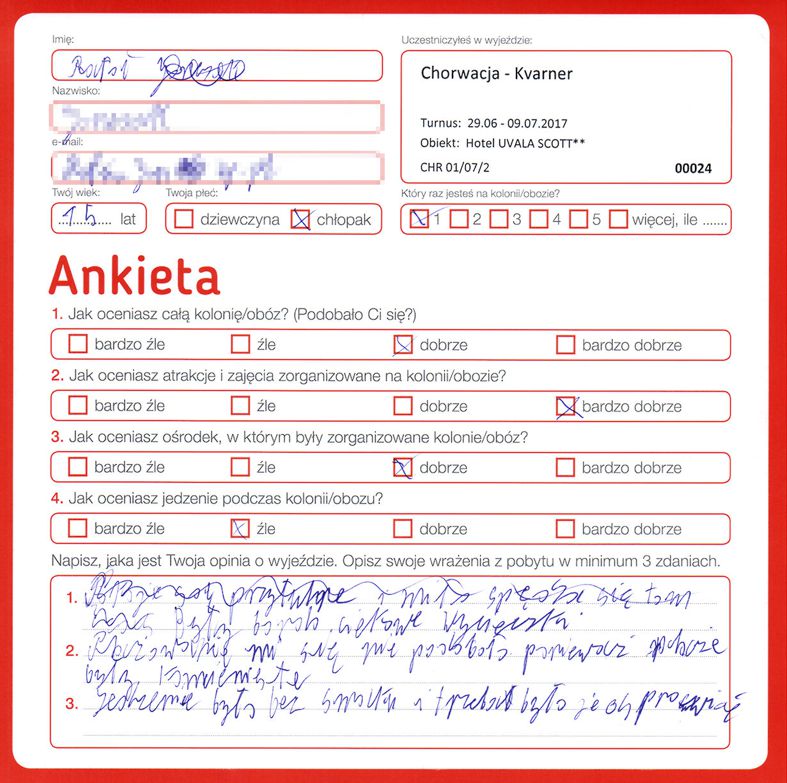 Imię:
Rafał
Nazwisko:
e-mail:
Twój wiek:
15 lat
Twoja płeć:
dziewczyna chłopak
Uczestniczyłeś w wyjeździe:
Chorwacja - Kvarner
Turnus: 29.06 - 09.07.2017
Obiekt: Hotel UVALA SCOTT**
CHR 01/07/2 00024
Który raz jesteś na kolonii/obozie?
1 2 3 4 5 więcej, ile .......
Ankieta
1. Jak oceniasz całą kolonię/obóz? (Podobało Ci się?)
bardzo źle źle dobrze bardzo dobrze
2. Jak oceniasz atrakcje i zajęcia zorganizowane na kolonii/obozie?
bardzo źle źle dobrze bardzo dobrze
3. Jak oceniasz ośrodek, w którym były zorganizowane kolonie/obóz?
bardzo źle źle dobrze bardzo dobrze
4. Jak oceniasz jedzenie podczas kolonii/obozu?
bardzo źle źle dobrze bardzo dobrze
Napisz, jaka jest Twoja opinia o wyjeździe. Opisz swoje wrażenia z pobytu w minimum 3 zdaniach.
1. i się tam
były
2. mi się nie ponieważ
były
3. było bez smaku i trzeba było je